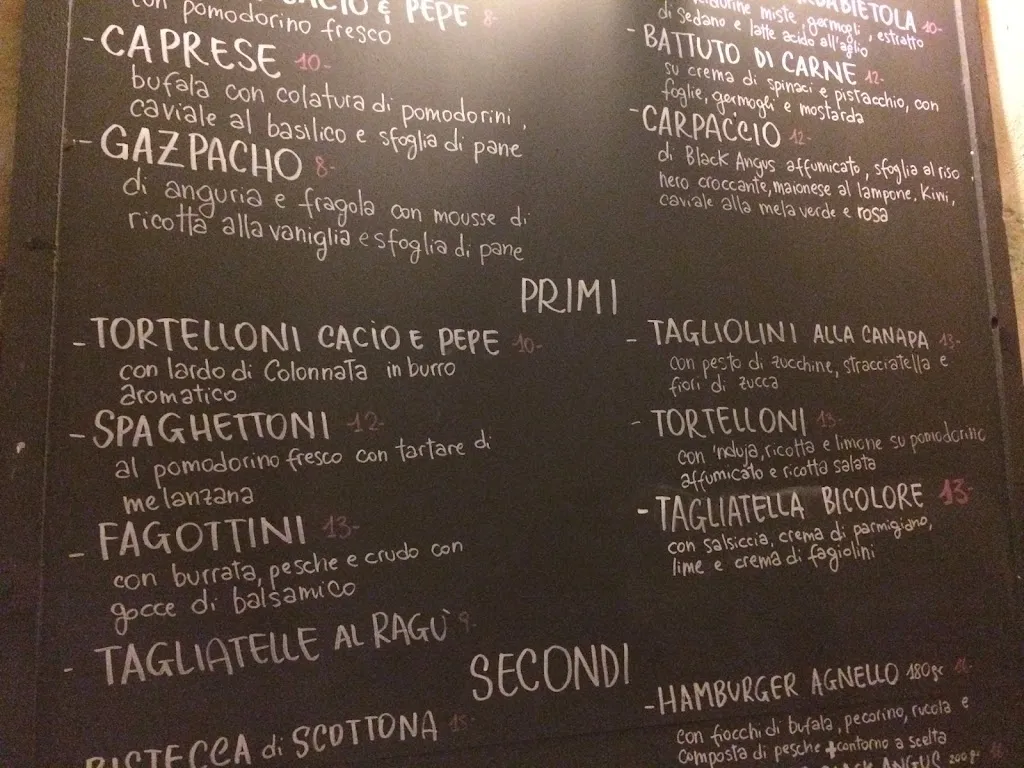 CACIO & PEPE 8-
con pomodorino fresco
- CAPRESE 10-
bufala con colatura di pomodorini,
caviale al basilico e sfoglia di pane
- GAZPACHO 8-
di anguria e fragola con mousse di
ricotta alla vaniglia e sfoglia di pane
10-
miste, germogli, estratto
di sedano e latte acido all'aglio
- BATTUTO DI CARNE 12-
su crema di spinaci e pistacchio, con
foglie, germogli e mostarda
- CARPACCIO 12-
di Black Angus affumicato, sfoglia al riso
nero croccante, maionese al lampone, kiwi,
caviale alla mela verde e rosa
PRIMI
- TORTELLONI CACIO E PEPE 10-
con lardo di Colonnata in burro
aromatico
- SPAGHETTONI 12-
al pomodorino fresco con tartare di
melanzana
- FAGOTTINI 13-
con burrata, pesche e crudo con
gocce di balsamico
- TAGLIATELLE AL RAGÙ 9-
- TAGLIOLINI ALLA CANAPA 13-
con pesto di zucchine, stracciatella e
fiori di zucca
- TORTELLONI 13-
con 'nduja, ricotta e limone su pomodorino
affumicato e ricotta salata
- TAGLIATELLA BICOLORE 13-
con salsiccia, crema di parmigiano,
lime e crema di fagiolini
SECONDI
BISTECCA di SCOTTONA 15-
- HAMBURGER AGNELLO 180gr
con fiocchi di bufala, pecorino, rucola e
composta di pesche + contorno a scelta
BLACK ANGUS 200 gr